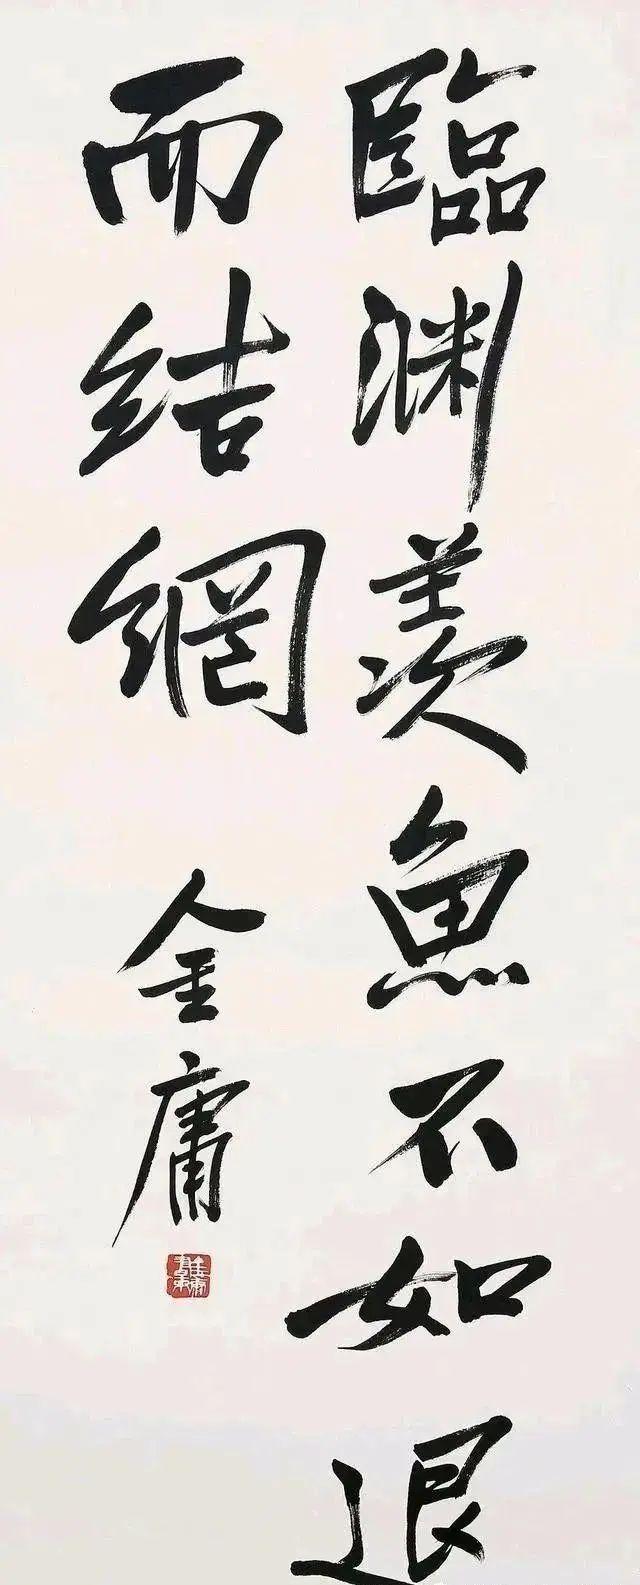 臨渊羨魚不如退
而結網
金庸